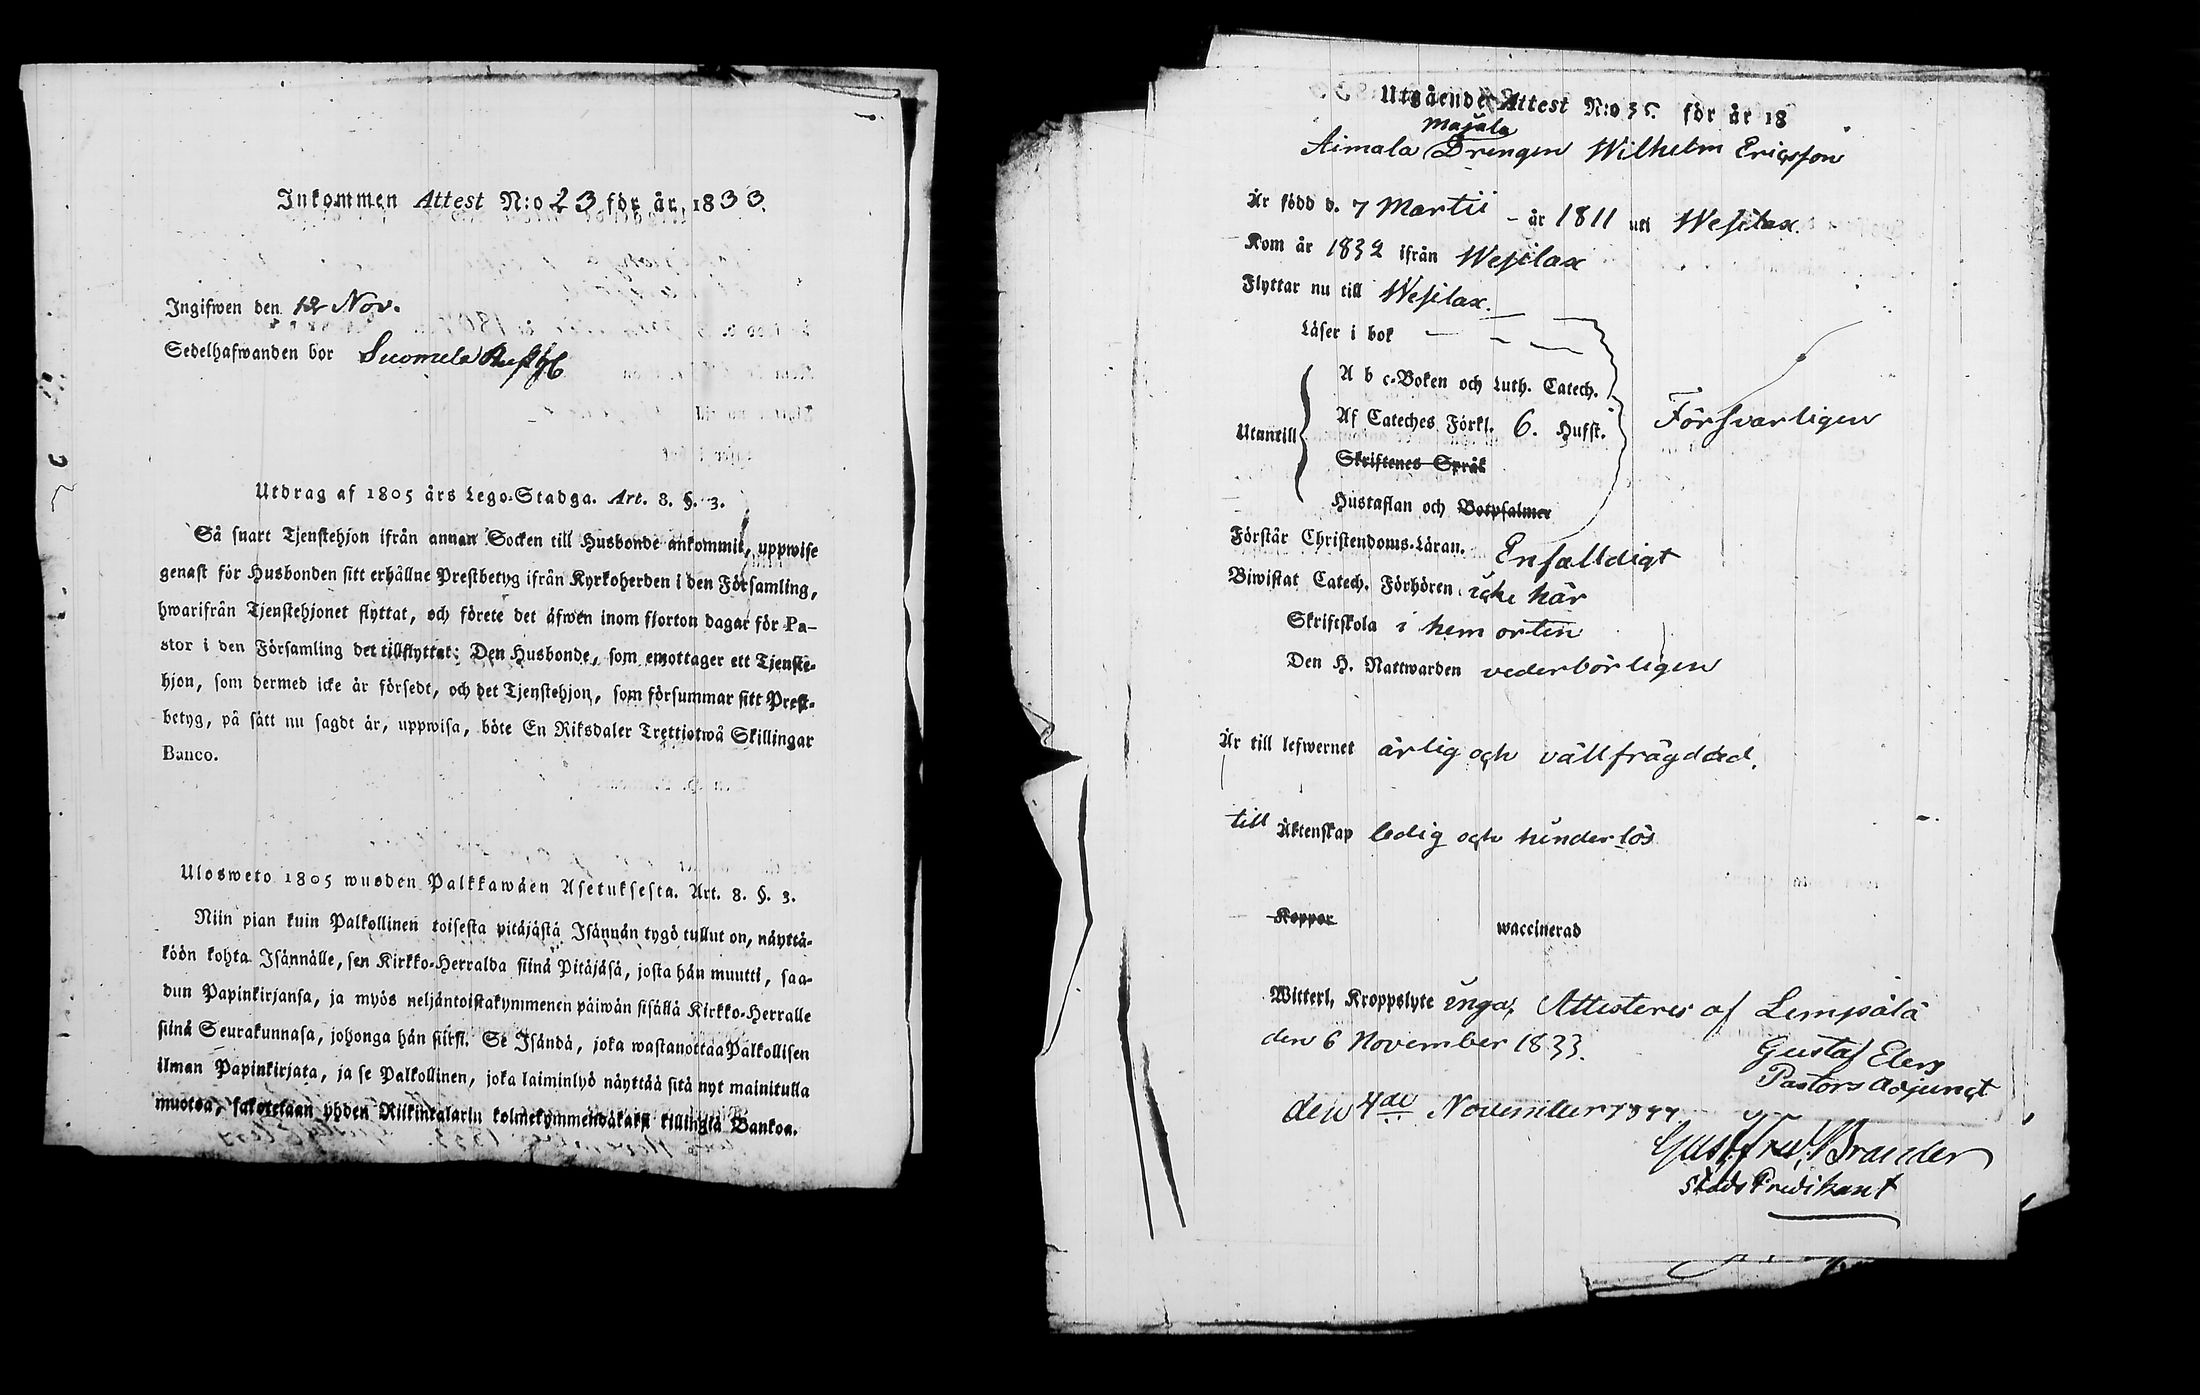 Inkommen Attest N:o 23 för år 1833.
Ingifwen den 12 Nov.
Sedelhafwanden bor Suomela
Utdrag af 1805 års Lego-Stadga. Art. 8. §. 3.
Så snart Tjenstehjon ifrån annan Socken till Husbonde ankommit, uppwise
genast för Husbonden sitt erhållne Prestbetyg ifrån Kyrkoherden i den Församling,
hwarifrån Tjenstehjonet flyttat, och förete det äfwen inom fjorton dagar för Pa-
stor i den Församling det tillflyttat: Den Husbonde, som emottager ett Tjenste-
hjon, som dermed icke är försedt, och det Tjenstehjon, som försummar sitt Prest-
betyg, på sätt nu sagdt är, uppwisa, böte En Riksdaler Trettiotwå Skillingar
Banco.
Ulosweto 1805 wuoden Palkkawäen Asetuksesta. Art. 8. §. 3.
Niin pian kuin Palkollinen toisesta pitäjästä Isännän tygö tullut on, näyttä-
köön kohta Isännälle, sen Kirkko-Herralda siinä Pitäjäsä, josta hän muutti, saa-
dun Papinkirjansa, ja myös neljäntoistakymmenen päiwän sisällä Kirkko-Herralle
siinä Seurakunnasa, johonga hän siirsi. Se Isändä, joka wastanottaa Palkollisen
ilman Papinkirjata, ja se Palkollinen, joka laiminlyö näyttää sitä nyt mainitulla
muotoa, sakotetaan yhden Riikintalarin kolmekymmendäkaksi killingiä Bankoa.
Utgående Attest N:o 35. för år 18
Majala
Aimala Drengen Wilhelm Ericsson
Är född d. 7 Martii - år 1811 uti Wesilax.
Kom år 1832 ifrån Wesilax
Flyttar nu till Wesilax.
Läser i bok
A b c-Boken och Luth. Catech.
Utantill Af Cateches Förkl. 6. Hufst. Försvarligen
Skriftenes Språk
Hustaflan och Botpsalmer
Förstår Christendoms-Läran. Enfalldigt
Biwistat Catech. Förhören icke här
Skriftskola i hem orten
Den H. Nattwarden vederbörligen
Är till lefwernet ärlig och vällfrägdad.
till Äktenskap ledig och hinderlös
Koppor waccinerad
Witterl. Kroppslyte inga, Attesteres af Lempälä
den 6 November 1833.
Gustaf Elers
Pastors adjunct
den 4de November
Brander
Stads Predikant